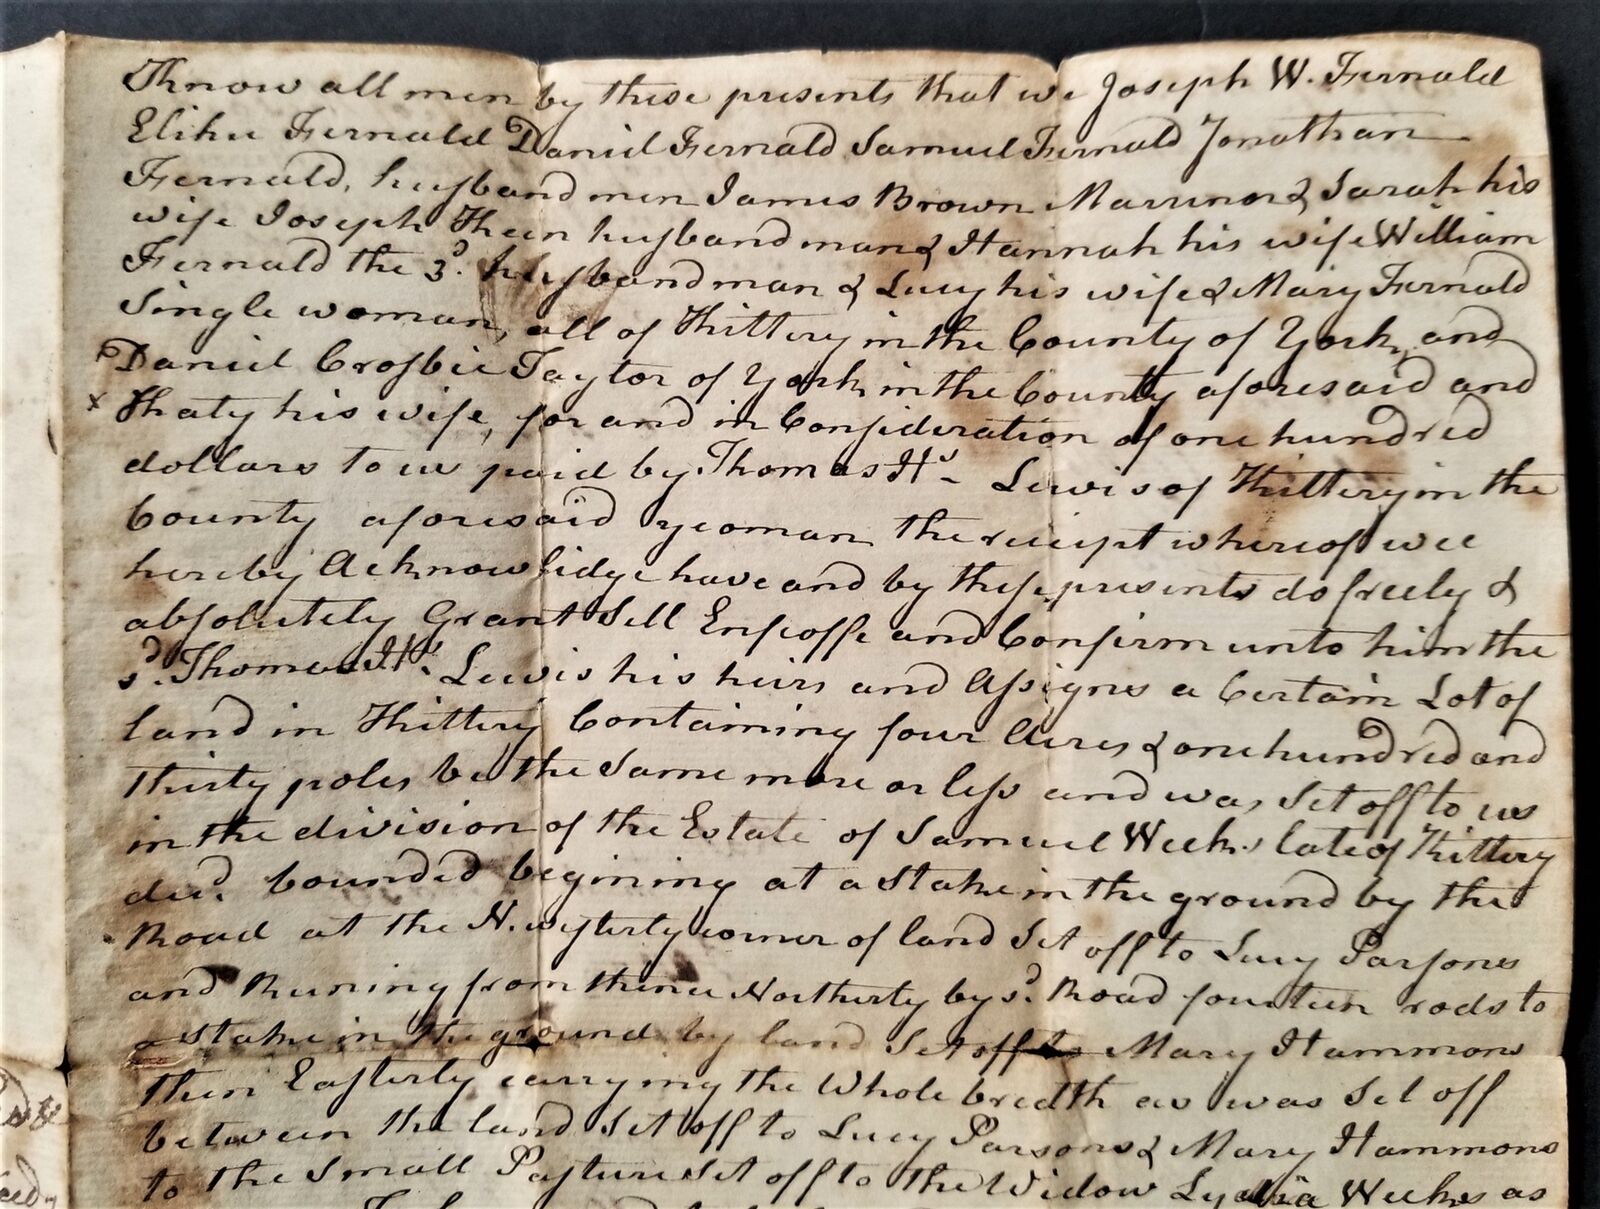 Know all men by these presents that we Joseph W. Fernald
Elihu Fernald Daniel Fernald Samuel Fernald Jonathan
Fernald, husband men James Brown Marriner & Sarah his
wife Joseph Keen husbandman & Hannah his wife William
Fernald the 3d. husbandman & Lucy his wife & Mary Fernald
Single woman, all of Kittery in the County of York, and
Daniel Crosbie Taylor of York in the County aforesaid and
x Katy his wife, for and in Consideration of one hundred
dollars to us paid by Thomas Hs. Lewis of Kittery in the
County aforesaid yeoman the receipt whereof wee
hereby Acknowlidge have and by these presents do freely &
absolutely Grant Sell Enfeoffe and Confirm unto him the
sd. Thomas Hs. Lewis his heirs and Assignes a Certain Lot of
land in Kittery Containing four Acres & one hundred and
thirty poles be the Same more or less and was Set off to us
in the division of the Estate of Samuel Weeks late of Kittery
decd. bounded begining at a Stake in the ground by the
Road at the N. westerly corner of land Set off to Lucy Parsons
and Runing from thence Northerly by sd. Road fourteen rods to
a stake in the ground by land Set off to Mary Hammons
then Easterly carrying the Whole bredth as was Set off
between the land Set off to Lucy Parsons & Mary Hammons
to the Small Pasture Set off to the Widow Lydia Weekes as